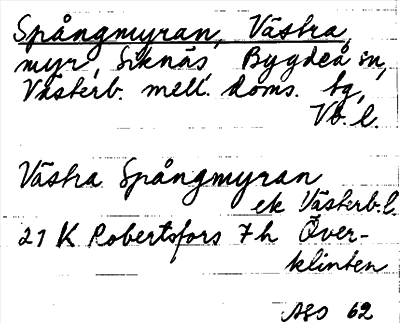 Spångmyran, Västra,
myr, Siknäs, Bygdeå sn,
Västerb. mell. doms. tg,
Vb. l.
Västra Spångmyran
ek Västerb.l.
21 K Robertsfors 7 h Över-
klinten
AGO 62